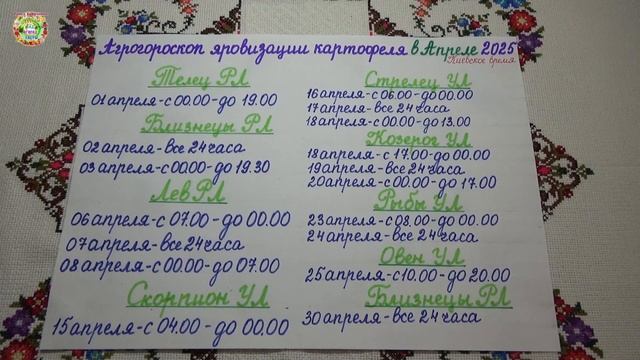 Агрогороскоп яровизации картофеля в Апреле 2025
Киевское время
Телец РЛ
01 апреля-с 00.00-до 19.00
Близнецы РЛ
02 апреля-все 24 часа
03 апреля-с 00.00-до 19.30
Лев РЛ
06 апреля-с 07.00-до 00.00
07 апреля-все 24 часа
08 апреля-с 00.00-до 07.00
Скорпион УЛ
15 апреля-с 04.00-до 00.00
Стрелец УЛ
16 апреля-с 06.00-до 00.00
17 апреля-все 24 часа
18 апреля-с 00.00-до 13.00
Козерог УЛ
18 апреля-с 17.00-до 00.00
19 апреля-все 24 часа
20 апреля-с 00.00-до 17.00
Рыбы УЛ
23 апреля-с 08.00-до 00.00
24 апреля-все 24 часа
Овен УЛ
25 апреля-с 10.00-до 20.00
Близнецы РЛ
30 апреля-все 24 часа